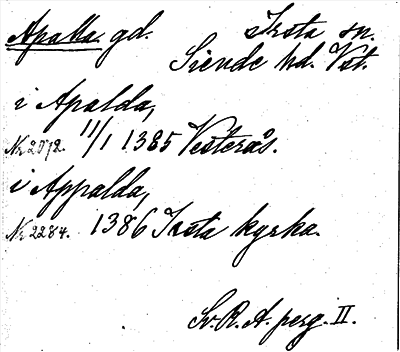 Apalla. gd. Irsta sn.
Siende hd. Vst.
i Apalda,
Nr 2072. 11/1 1385 Vesterås.
i Appalda,
Nr 2284. 1386 Irsta kyrka.
Sv. R. A. perg. II.